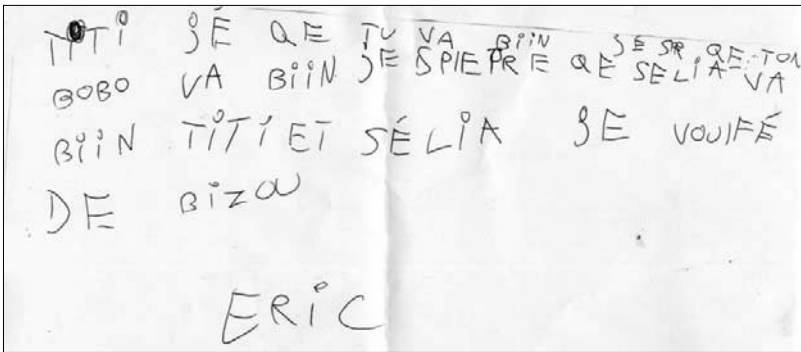 TITI JÉ QE TU VA BIIN JE SPR QE TON
BOBO VA BIIN JE SPIEPRE QE SELIA VA
BIIN TITI ET SÉLIA JE VOUIFÉ
DE BIZOU
ERIC